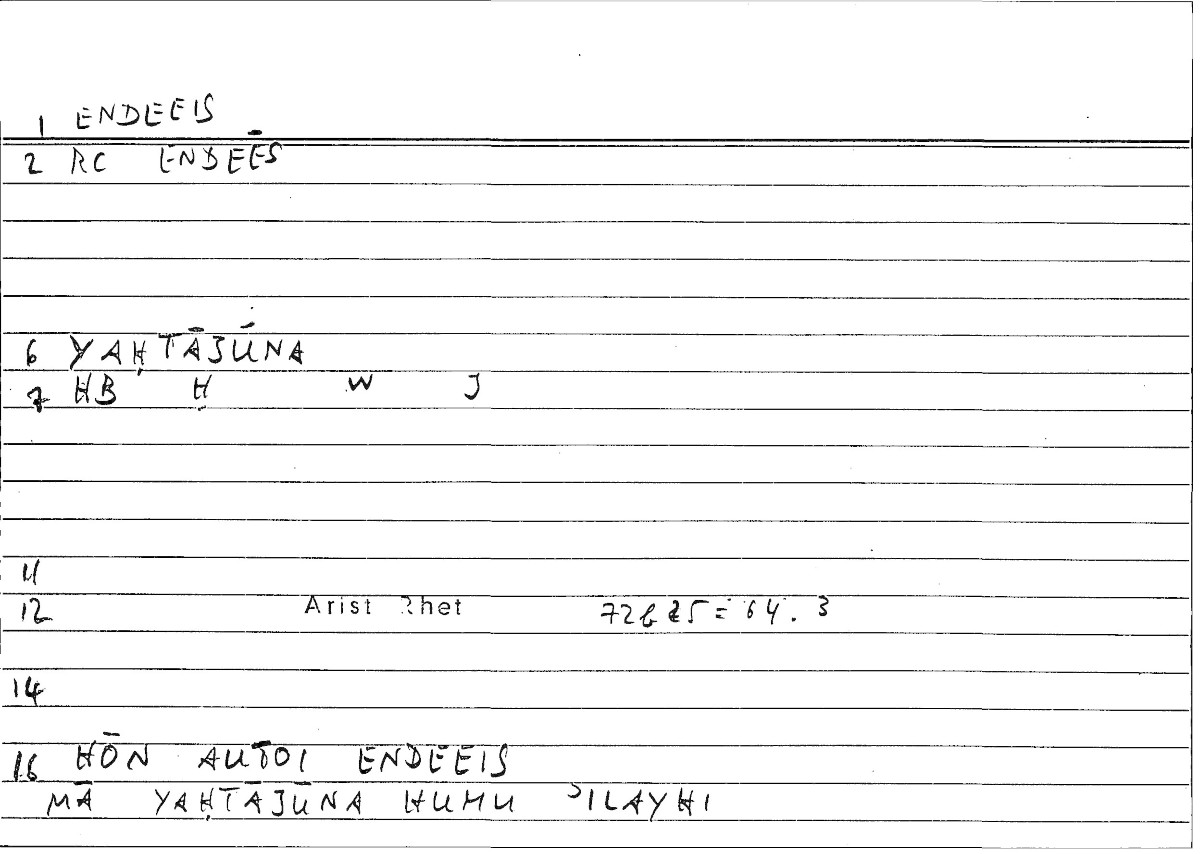 1 ENDEEIS
2 RC ENDEĒS
6 YAḤTĀJŪNA
7 HB Ḥ W J
11
12 Arist Rhet 72b25 = 64.3
14
16 HŌN AUTOI ENDEEIS
MĀ YAḤTĀJŪNA HUMU ʾILAYHI